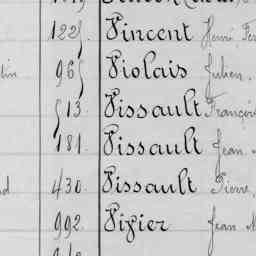 122 Vincent Henri
tin 96 Violais Julien
13 Vissault François
181 Vissault Jean
430 Vissault Pierre,
992 Vivier Jean